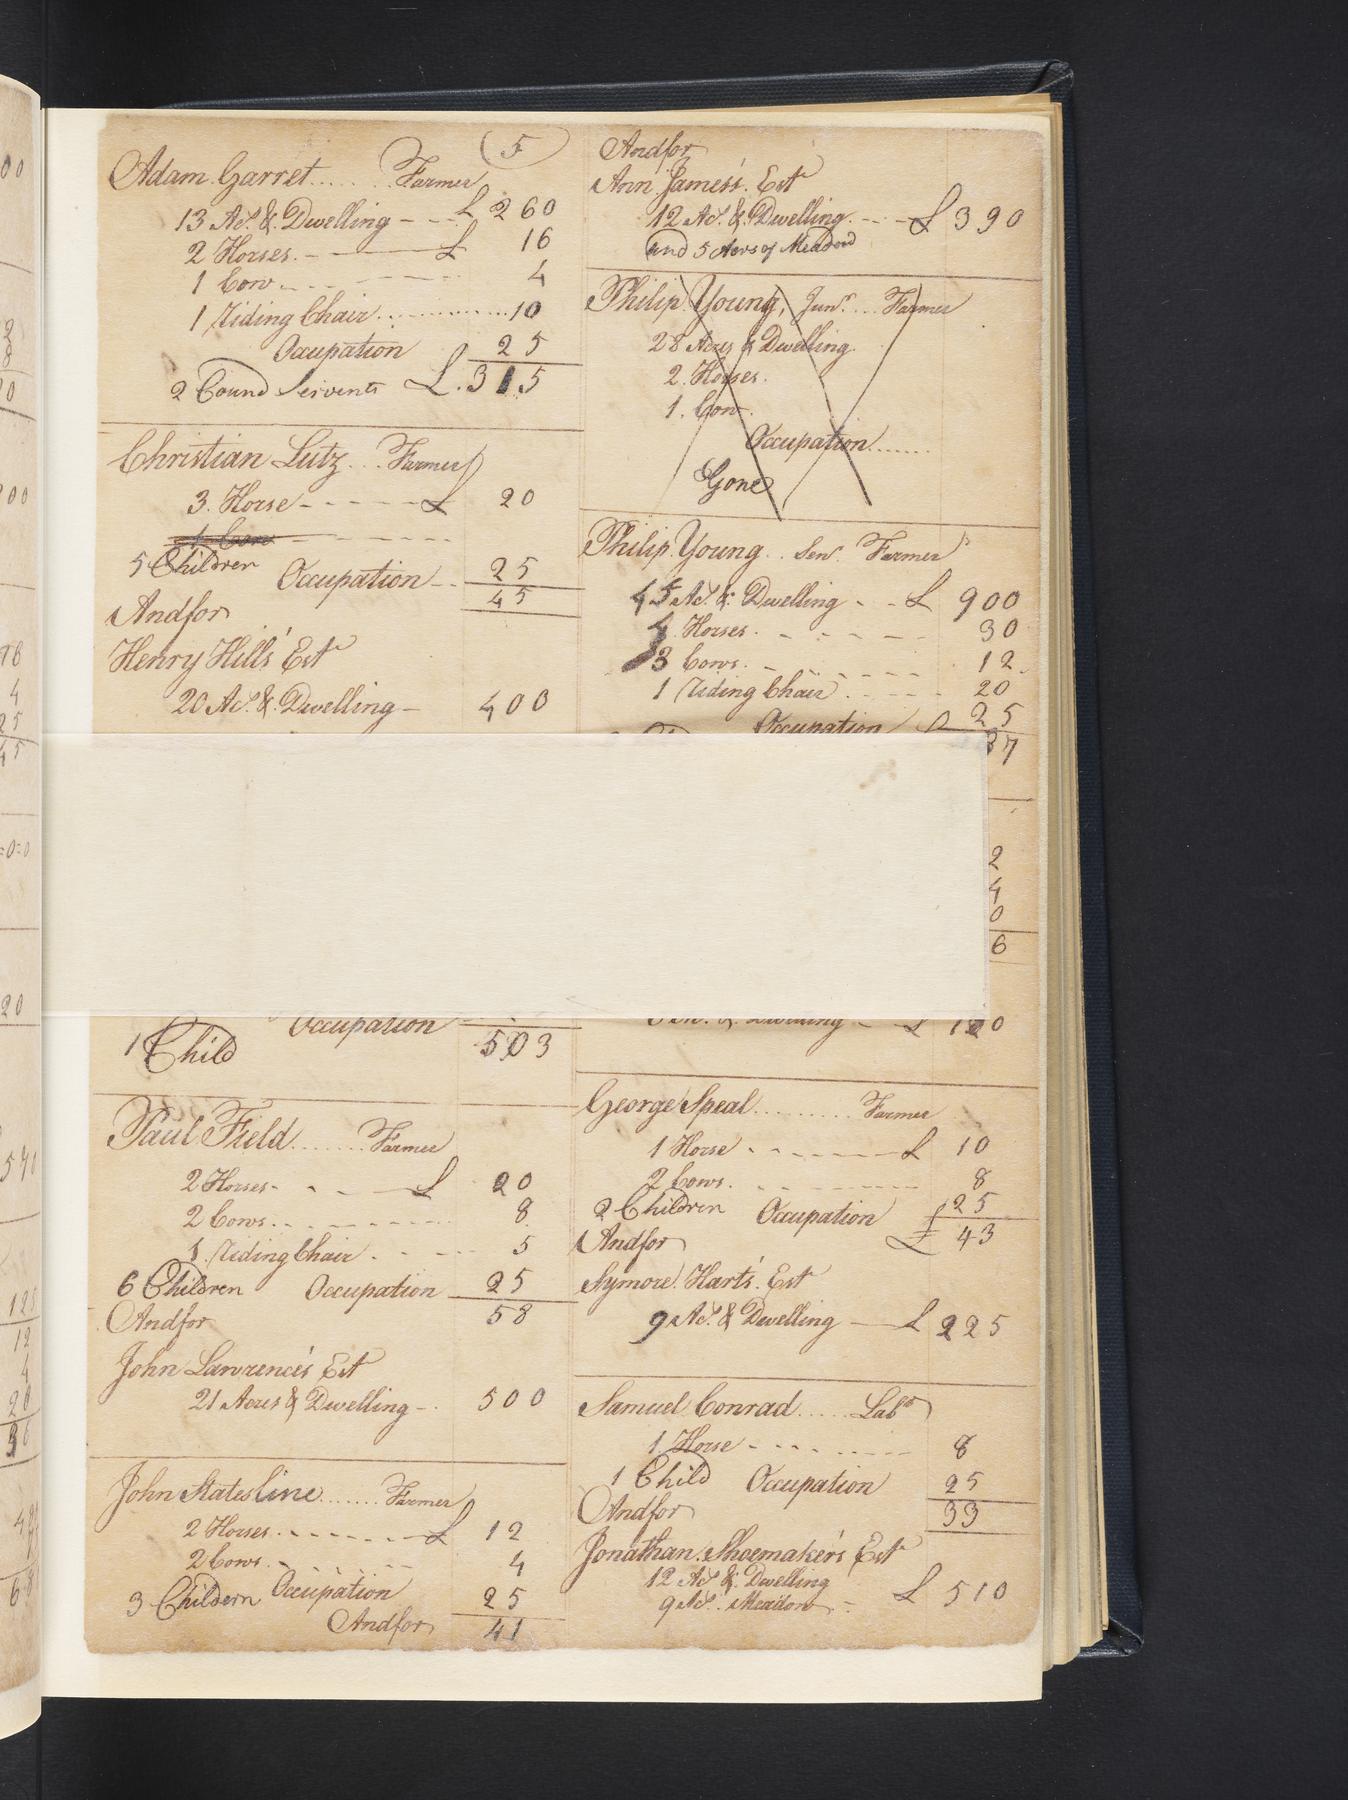 5
Adam Garret...... Farmer
13 Acs. & Dwelling - - £ 260
2 Horses. - £ 16
1 Cow - - - 4
1 Riding Chair ............ 10
Ocupation 25
2 Bound Servents £. 315
Christian Lutz... Farmer
3. Horse - - - - £ 20
1 Cow - - - -
5 Children Occupation - - 25
45
Andfor
Henry Hill's Est
20 Acs. & Dwelling - 400
Occupation
1 Child 503
Paul Field....... Farmer
2 Horses - - - £ 20
2 Cows. - - - 8
1 Riding Chair . - - - 5
6 Children Occupation 25
Andfor 58
John Lawrence's Est
21 Acres & Dwelling - . 500
John Statesline....... Farmer
2 Horses - - - - £ 12
2 Cows. - - - - 4
3 Childern Occupation 25
Andfor 41
Andfor
Ann James's. Est
12 Acs. & Dwelling. - - - £ 390
and 5 Acers of Meadow
Philip Young, Junr... Farmer
28 Acres & Dwelling.
2. Horses.
1. Cow.
Occupation.......
Gone
Philip. Young.. Senr. Farmer
45 Acs. & Dwelling - - £ 900
4 Horses. - - - - 30
3 Cows. - - - - 12
1 Riding Chair . - - - 20
Occupation 25
87
2
4
0
6
& Dwelling - £ 120
George Speal......... Farmer
1 Horse - - - - £ 10
2 Cows. - - - - 8
2 Children Occupation 25
Andfor £ 43
Symore. Hart's. Est
9 Acs. & Dwelling - £ 225
Samuel Conrad..... Labr
1. Horse - - - - 8
1 Child Occupation 25
Andfor 33
Jonathan. Shoemaker's Est
12 Acs. & Dwelling
9 Acs. Meadow - £ 510